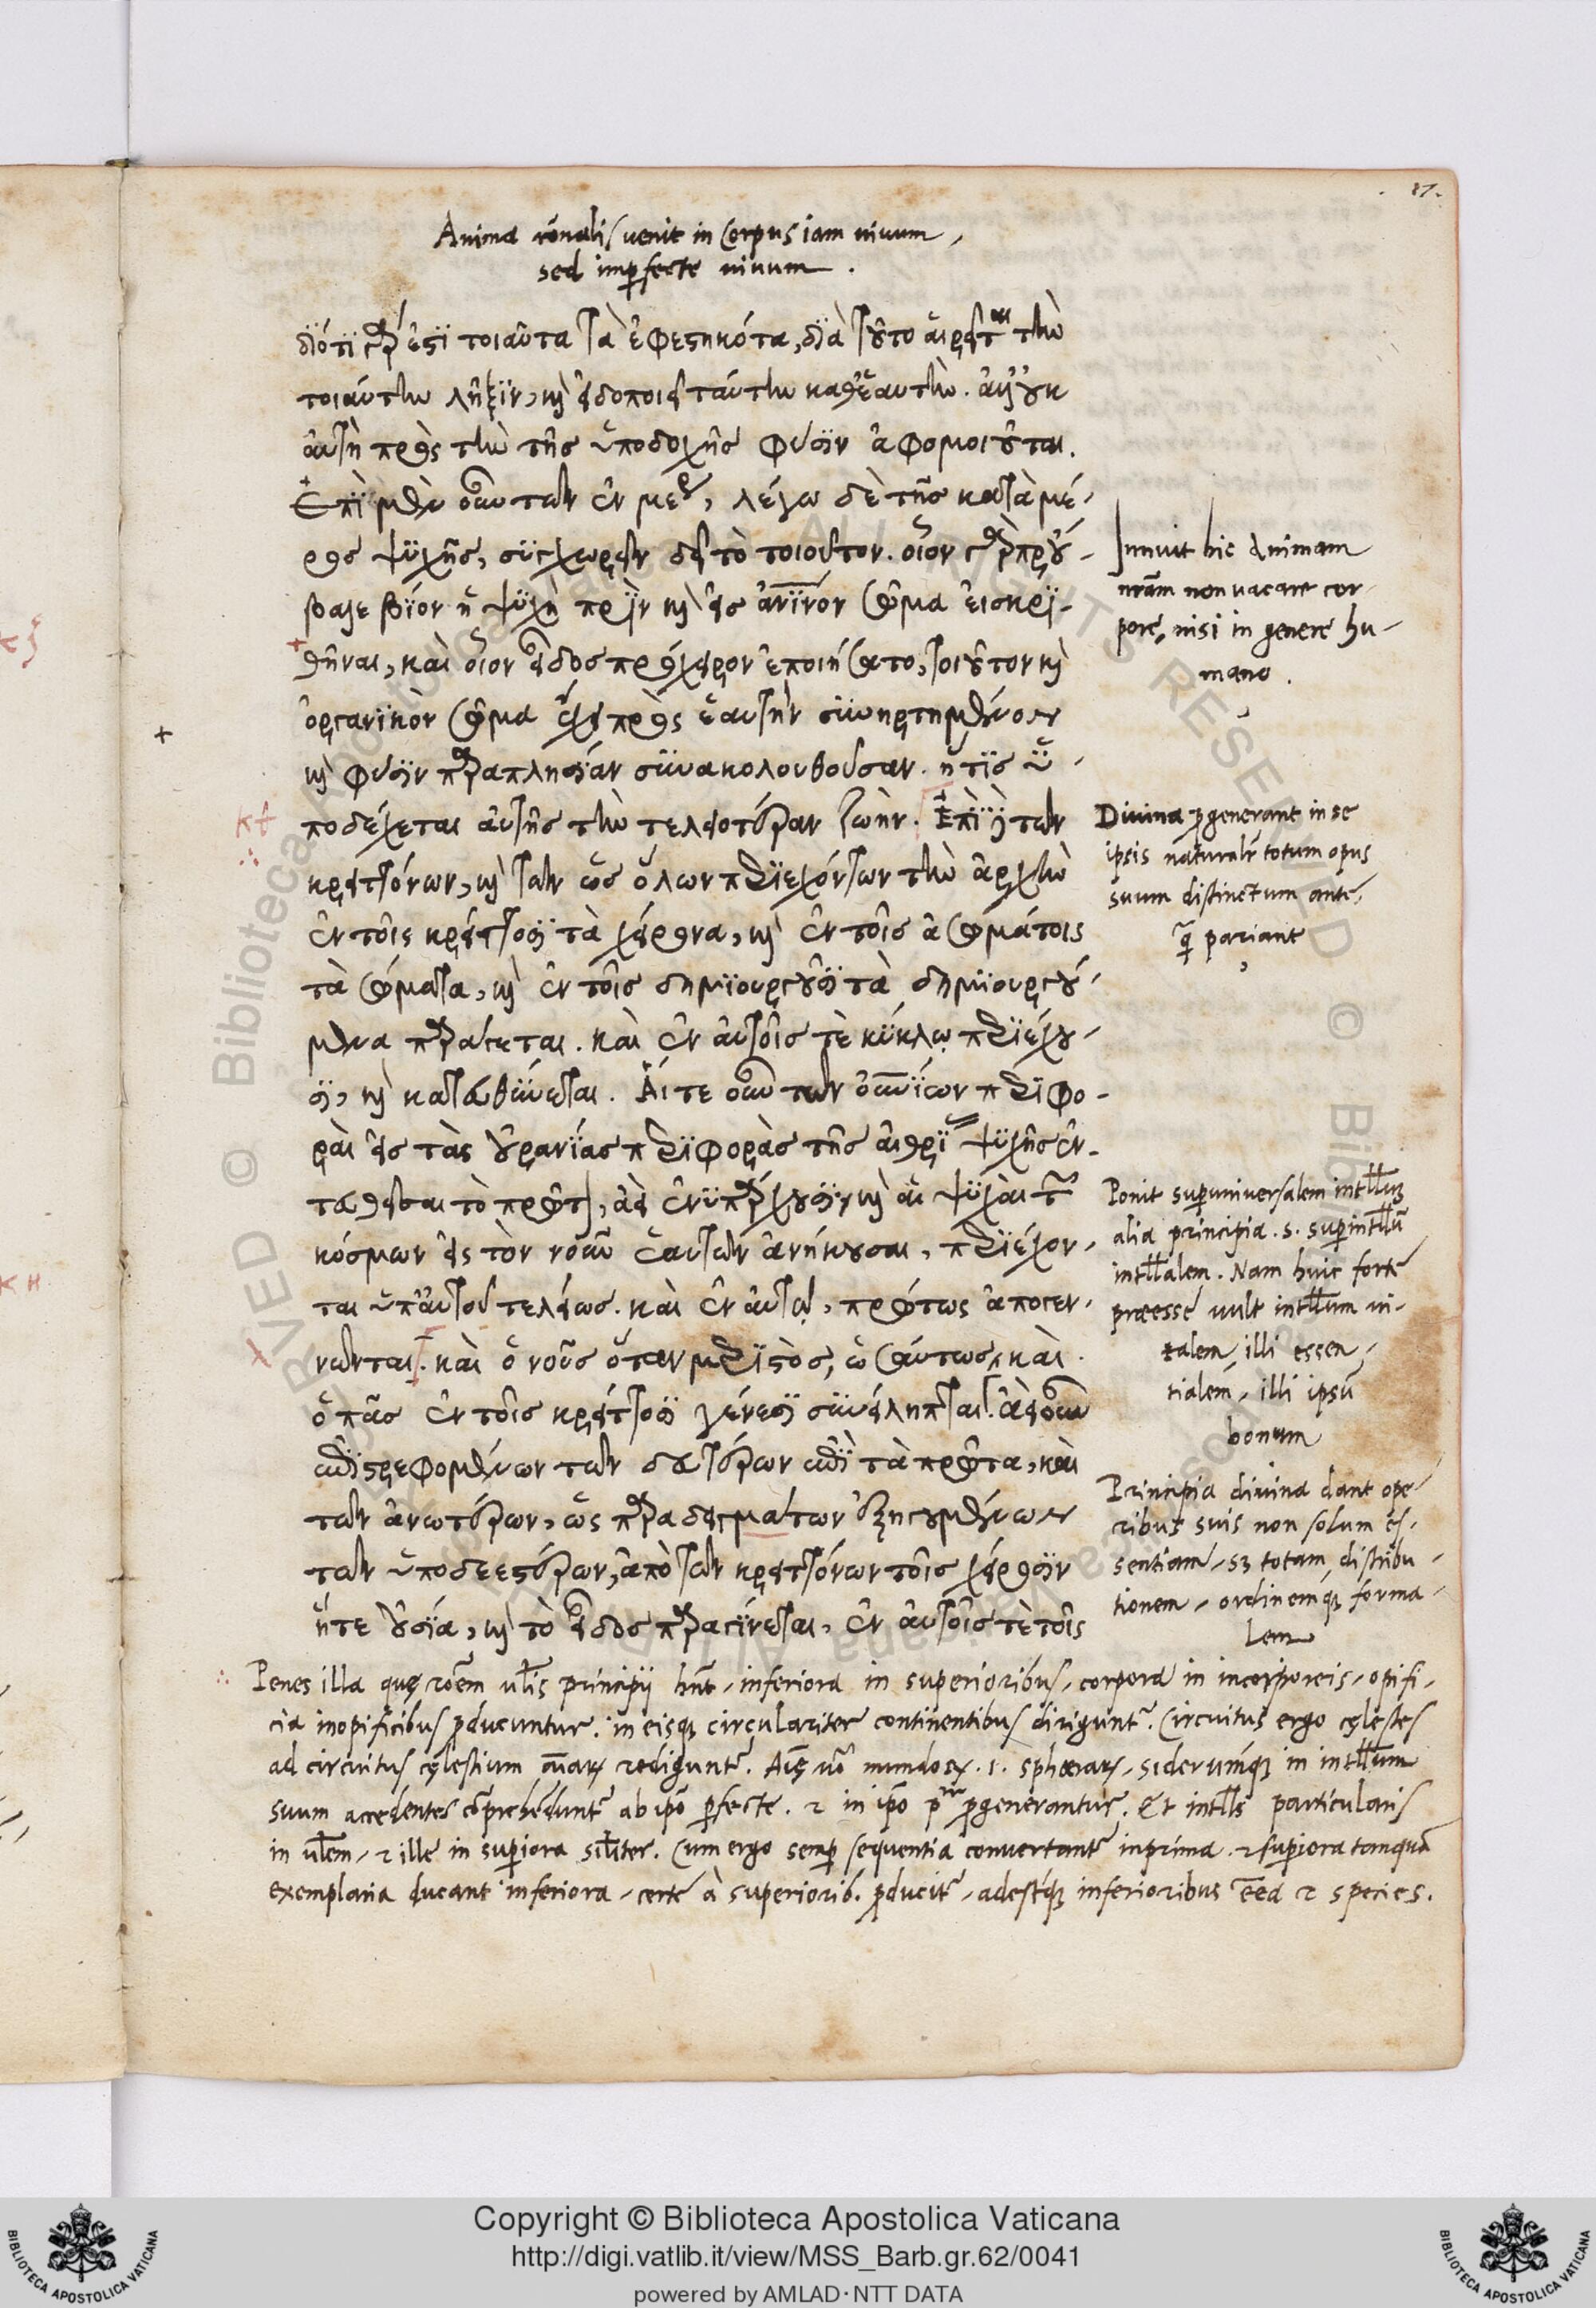 87.
Anima rõnalis uenit in Corpus iam uiuum,
sed imperfecte uiuum.
διότι γάρ ἐστι τοιαῦτα τὰ ἐφεστηκότα, διὰ τοῦτο αἱρεῖται τὴν
τοιαύτην λῆξιν, καὶ εἰδοποιεῖ ταύτην καθ' ἑαυτὴν. ἀλλ' οὐκ
αὐτὴ πρὸς τὴν τῆς ὑποδοχῆς φύσιν ἀφομοιοῦται.
Ἐπὶ μὲν οὖν τῶν ἐν μέρει, λέγω δὲ τῆς κατὰ μέ-
ρος ψυχῆς, συγχωρεῖν δεῖ τὸ τοιοῦτον. οἷον γὰρ πρού-
βαλε βίον ἡ ψυχὴ πρὶν καὶ εἰς ἀνῖνον σῶμα εἰσκρι-
θῆναι, καὶ οἷον εἶδος πρόχειρον ἐποιήσατο, τοιοῦτον καὶ
ὀργανικὸν σῶμα ἔχει πρὸς ἑαυτὴν συνηρτημένον
καὶ φύσιν παραπλησίαν συνακολουθοῦσαν. ἥτις ὑ-
ποδέχεται αὐτῆς τὴν τελειοτέραν ζωὴν. Ἐπὶ δὲ τῶν
κρειττόνων, καὶ τῶν ὡς ὅλων περιεχόντων τὴν ἀρχὴν
ἐν τοῖς κρείττοσι τὰ χείρονα, καὶ ἐν τοῖς ἀσωμάτοις
τὰ σώματα, καὶ ἐν τοῖς δημιουργοῦσι τὰ δημιουργού-
μενα παράγεται. καὶ ἐν αὐτοῖς τὲ κύκλῳ περιέχου-
σι, καὶ κατευθύνεται. Αἵ τε οὖν τῶν οὐνίων περιφο-
ραὶ εἰς τὰς οὐρανίας περιφορὰς τῆς αἰθρί ψυχῆς ἐν-
τεθεῖσαι τὸ πρῶτον, ἀεὶ ἐνυπάρχουσι, καὶ αἱ ψυχαὶ τῶν
κόσμων εἰς τὸν νοῦν ἑαυτῶν ἀνήκουσαι, περιέχον-
ται ὑπ' αὐτοῦ τελείως. καὶ ἐν αὐτῷ, πρώτως ἀπογεν-
νῶνται. καὶ ὁ νοῦς ὅταν μεριστὸς, ὡσαύτως, καὶ
ὁ πᾶς ἐν τοῖς κρείττοσι γένεσι συνείληπται. ἀεὶ οὖν
ἐπιστρεφομένων τῶν δευτέρων ἐπὶ τὰ πρῶτα, καὶ
τῶν ἀνωτέρων, ὡς παραδειγμάτων ἐξηγουμένων
τῶν ὑποδεεστέρων, ἀπὸ τῶν κρειττόνων τοῖς χείροσιν
ἥτε οὐσία, καὶ τὸ εἶδος παραγίνεται, ἐν αὐτοῖς τὲ τοῖς
Innuit hic animam
nrãm non uacare cor-
pore, nisi in genere hu-
mano.
Diuina progenerant in se
ipsis naturalr totum opus
suum distinctum ante,
q̃ pariant
Ponit super uniuersalem intllm̃
alia principia .s. superintllũ
intllalem. Nam huic forte
præesse uult intllum ui-
talem, illi essen-
tialem, illi ipsũ
bonum
Principia diuina dant ope-
ribus suis non solum es-
sentiam, sꝫ totam distribu-
tionem, ordinemq̃ forma-
lem
Penes illa quę rõem ulis principij hñt, inferiora in superioribus, corpora in incorporeis, opifi-
cia in opificibus producuntur. in eisq̃ circulariter continentibus diriguntr. Circuitus ergo cęlestes
ad circuitus cęlestium aĩarꝝ rediguntr. Aię uõ mundorꝝ .i. sphærarꝝ, siderumq̃ in intllum
suum accedentes cõprehẽduntr ab ipõ perfecte. & in ipõ progenerantur. Et intlls particularis
in ulem, & ille in superiora siliter. Cum ergo semper sequentia conuertantr in prima. & superiora tanquã
exemplaria ducant inferiora, certe à superiorib. producitr, adestq̃ inferioribus eẽa & species.
κζ
κη
Copyright © Biblioteca Apostolica Vaticana
http://digi.vatlib.it/view/MSS_Barb.gr.62/0041
powered by AMLAD·NTT DATA
BIBLIOTECA APOSTOLICA VATICANA
BIBLIOTECA APOSTOLICA VATICANA